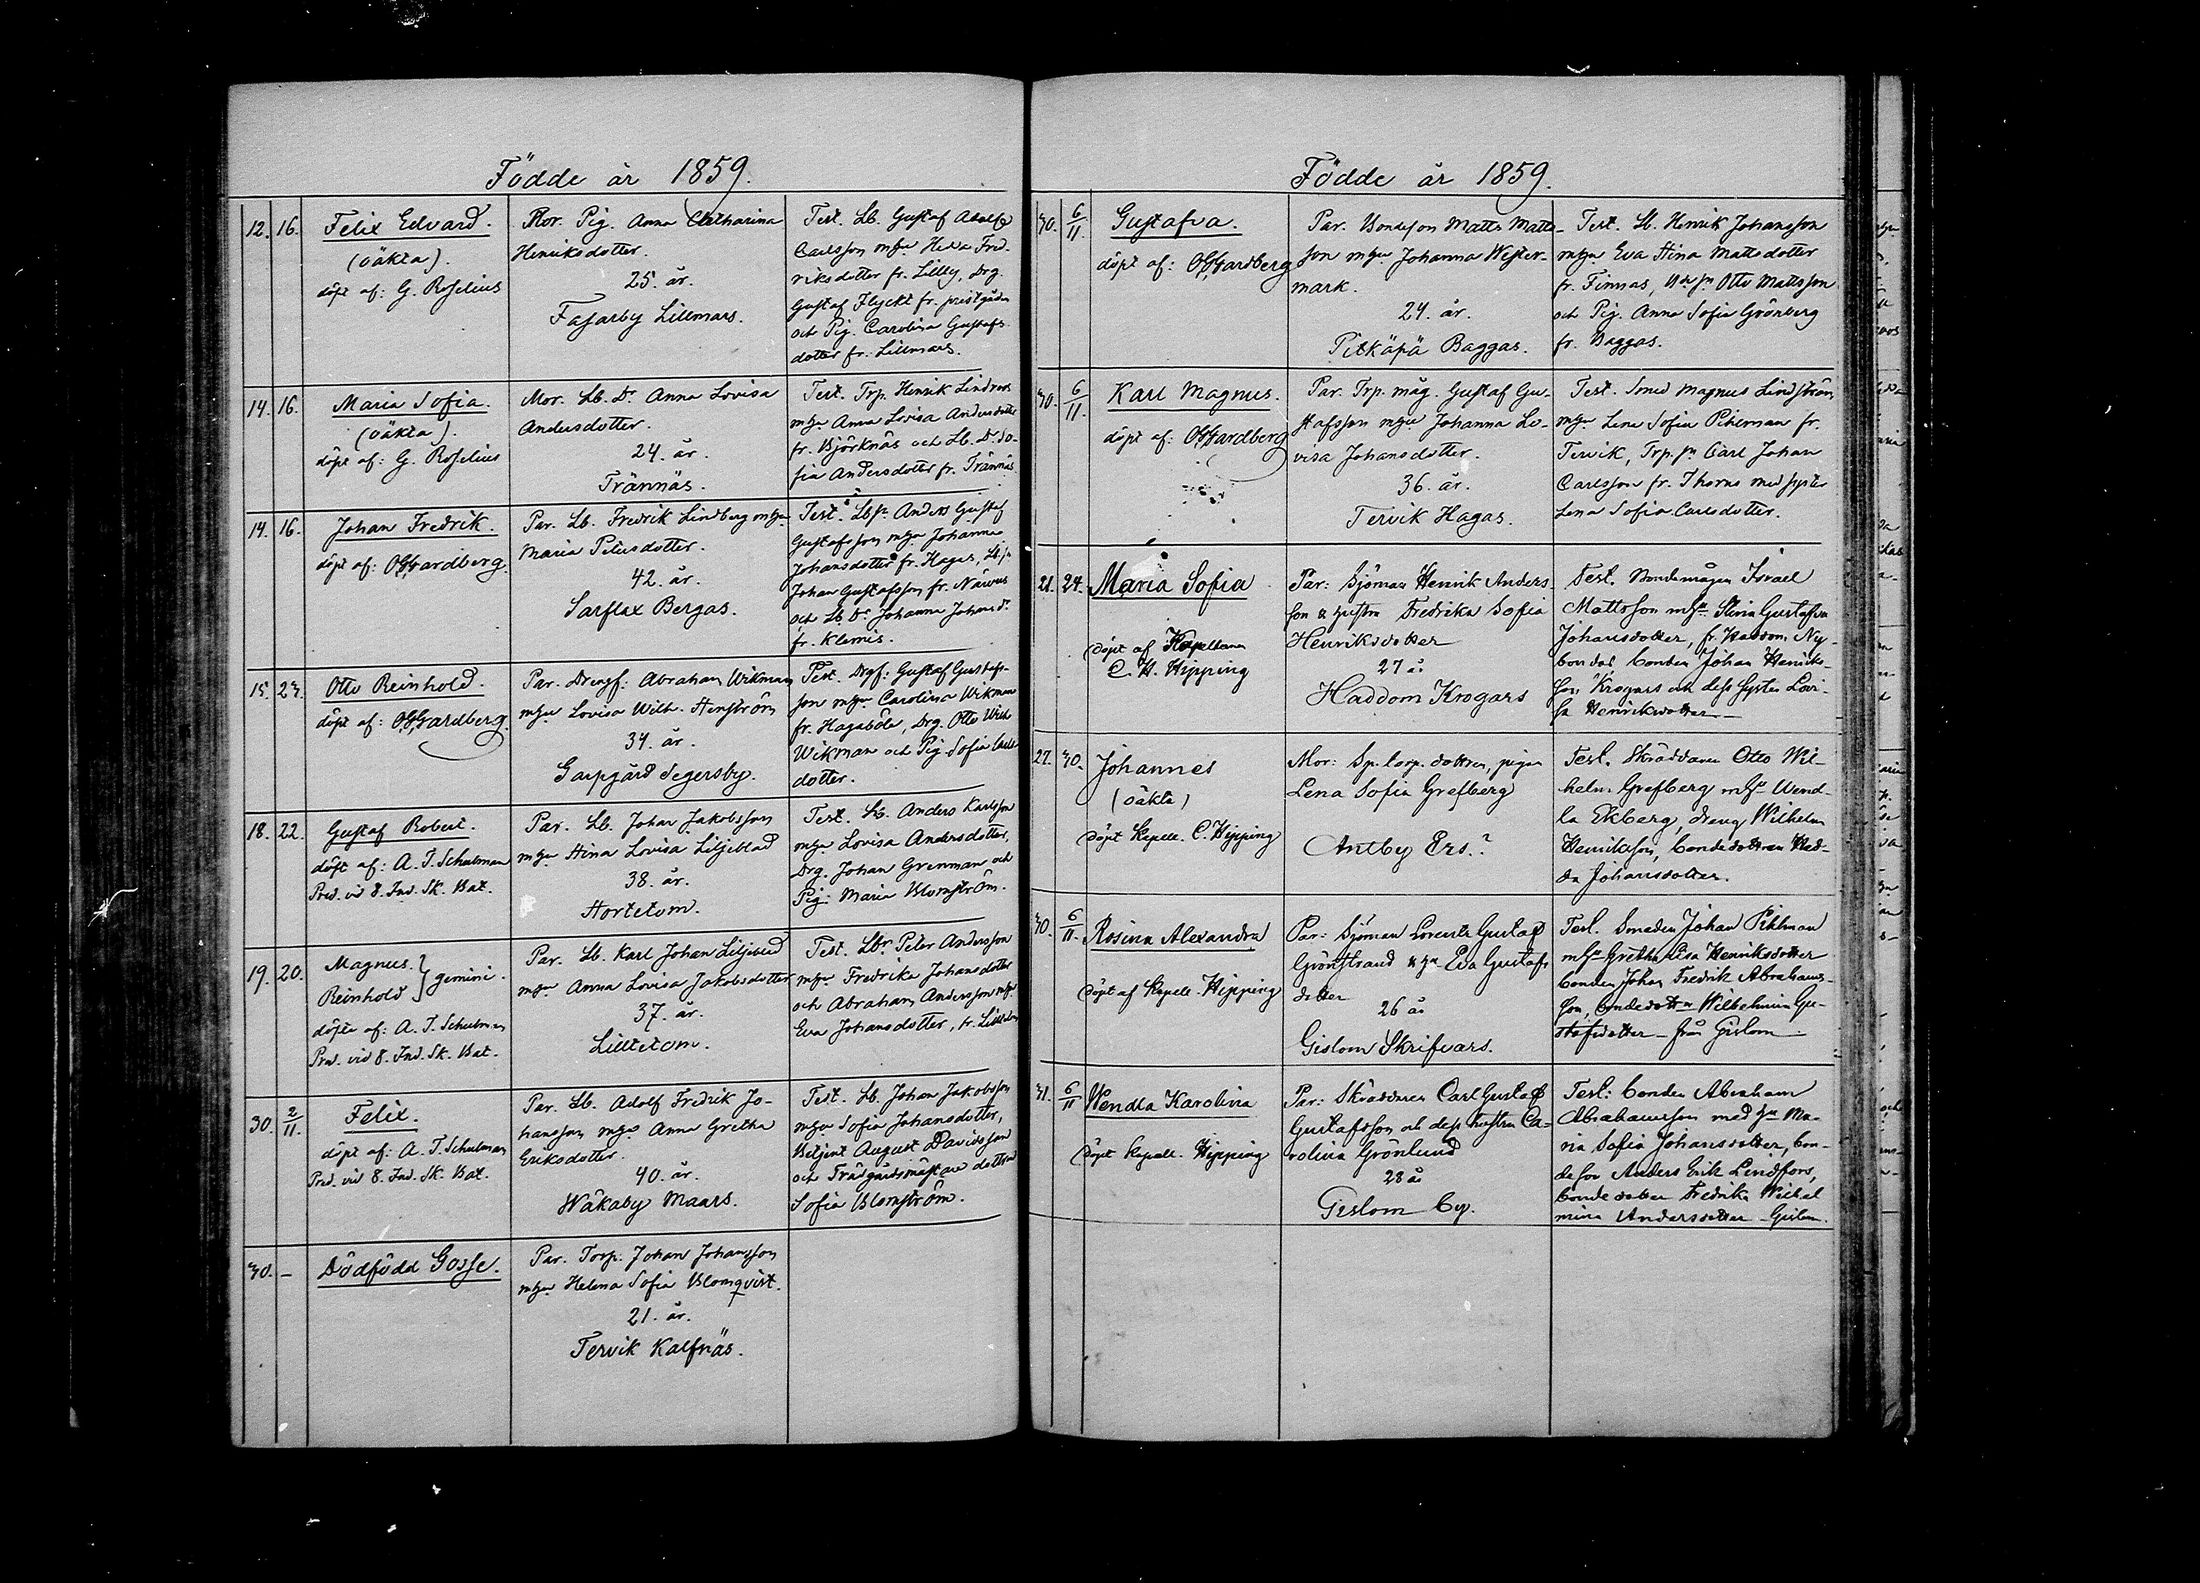 Födde år 1859.
12. 16. Felix Edvard.
(oäkta).
döpt af: G. Roselius
Mor. Pig. Anna Catharina
Henriksdotter.
25. år.
Fasarby Lillmars.
Test. Lb. Gustaf Adolf
Carlsson mhu Hedda Fred-
riksdotter fr. Lilly, Drg.
Gustaf Flyckt fr. prestgården
och Pig. Carolina Gustafs-
dotter fr. Lillmars.
14. 16. Maria Sofia.
(oäkta).
döpt af: G. Roselius
Mor. Lb. Dr. Anna Lovisa
Andersdotter.
24. år.
Trännäs.
Test. Trp. Henrik Lindroos
mhu Anna Lovisa Andersdotter
fr. Björknäs och Lb. Dr. So-
fia Andersdotter fr. Trännäs
14. 16. Johan Fredrik.
döpt af: O. Gardberg.
Par. Lb. Fredrik Lindberg mhu
Maria Petersdotter.
42. år.
Sarflax Bergas.
Test. Lbsn Anders Gustaf
Gustafsson mhu Johanna
Johansdotter fr. Hagas, Lb.sn
Johan Gustafsson fr. Närvus
och Lb Dr. Johanna Johans dr.
fr. Klemis.
15. 23. Otto Reinhold.
döpt af: O. Gardberg.
Par. Drengf: Abraham Wikman
mhu Lovisa Wilh. Stenström
34. år.
Garpgård Segersby.
Test. Drgf: Gustaf Gustafs-
son mhu Carolina Wikman
fr. Hagaböle, Drg. Otto Wilh
Wikman och Pig Sofia Carls-
dotter.
18. 22. Gustaf Robert.
döpt af: A. T. Schulman
Pred. vid 8. Ind. Sk. Bat.
Par. Lb. Johan Jakobsson
mhu Stina Lovisa Liljeblad
38. år.
Hortetom.
Test. Lb. Anders Karlsson
mhu Lovisa Andersdotter,
Drg. Johan Grenman och
Pig: Maria Blomström.
19. 20. Magnus.
Reinhold } gemini.
döpta af: A. T. Schulman
Pred. vid 8. Ind. Sk. Bat.
Par. Lb. Karl Johan Liljeblad
mhu Anna Lovisa Jakobsdotter
37. år.
Lilltetom.
Test. Lbr Peter Andersson
mhu Fredrika Johansdotter
och Abraham Andersson mhu
Eva Johansdotter, fr.
30. 2/11. Felix.
döpt af: A. T. Schulman
Pred. vid 8. Ind. Sk. Bat.
Par. Lb. Adolf Fredrik Jo-
hansson mhu Anna Gretha
Eriksdotter.
40. år.
Wåkaby Maars.
Test. Lb. Johan Jakobsson
mhu Sofia Johansdotter,
Betjent August Davidsson
och Trädgårdsmästare dottren
Sofia Blomström.
30. – Dödfödd Gosse.
Par. Torp. Johan Johansson
mhu Helena Sofia Blomqvist.
21. år.
Tervik Kalfnäs.
Födde år 1859.
30. 6/11 Gustafva.
döpt af: O. Gardberg
Par. Bondeson Matts Matts-
son mhu Johanna Wester-
mark.
24. år.
Pitkäpä Baggas.
Test. Lb. Henrik Johansson
mhu Eva Stina Mattsdotter
fr. Finnas, Bdesn Otto Mattsson
och Pig. Anna Sofia Grönberg
fr. Baggas.
30. 6/11. Karl Magnus.
döpt af: O. Gardberg
Par. Trp. måg. Gustaf Gu-
stafsson mhu Johanna Lo-
visa Johansdotter.
36. år.
Tervik Hagas.
Test. Smed Magnus Lindström
mhu Lena Sofia Pihlman fr.
Tervik, Trp. sn Carl Johan
Carlsson fr. Thorns med syster
Lena Sofia Carlsdotter.
21. 24. Maria Sofia
döpt af Kapellanen
C. H. Hipping
Par: Sjöman Henrik Anders-
son & hustru Fredrika Sofia
Henriksdotter
27 år
Haddom Krogars
Test. Bondemågen Israel
Mattsson mhu Stina Gustafva
Johansdotter, fr. Haddom Ny-
bondas bonden Johan Henriks-
son Krogars och dess syster Lovi-
sa Henriksdotter
27. 30. Johannes
(oäkta)
döpt Kapell. C. Hipping
Mor: Sp. torp. dottren, pigan
Lena Sofia Grefberg
Antby Ers.?
Test. Skräddaren Otto Wil-
helm Grefberg mhu Wend-
la Ekberg, dreng Wilhelm
Henriksson, bondedottren Hed-
da Johansdotter.
30. 6/11. Rosina Alexandra
döpt af Kapell. Hipping
Par: Sjöman Lorentz Gustaf
Grönstrand & hu Eva Gustafs-
dotter
26 år
Gislom Skrifvars.
Test. Smeden Johan Pihlman
mhu Gretha Lisa Henriksdotter
bonden Johan Fredrik Abrahams-
son, bondedottren Wilhelmina Gu-
stafsdotter – från Gislom
31. 6/11 Wendla Karolina
döpt Kapell. Hipping
Par: Skräddaren Carl Gustaf
Gustafsson och dess hustru Ca-
rolina Grönlund
28 år
Gislom by.
Test: bonden Abraham
Abrahamsson med hu Ma-
ria Sofia Johansdotter, bon-
deson Anders Erik Lindfors,
bondedotter Fredrika Wilhel-
mina Andersdotter – Gislom.